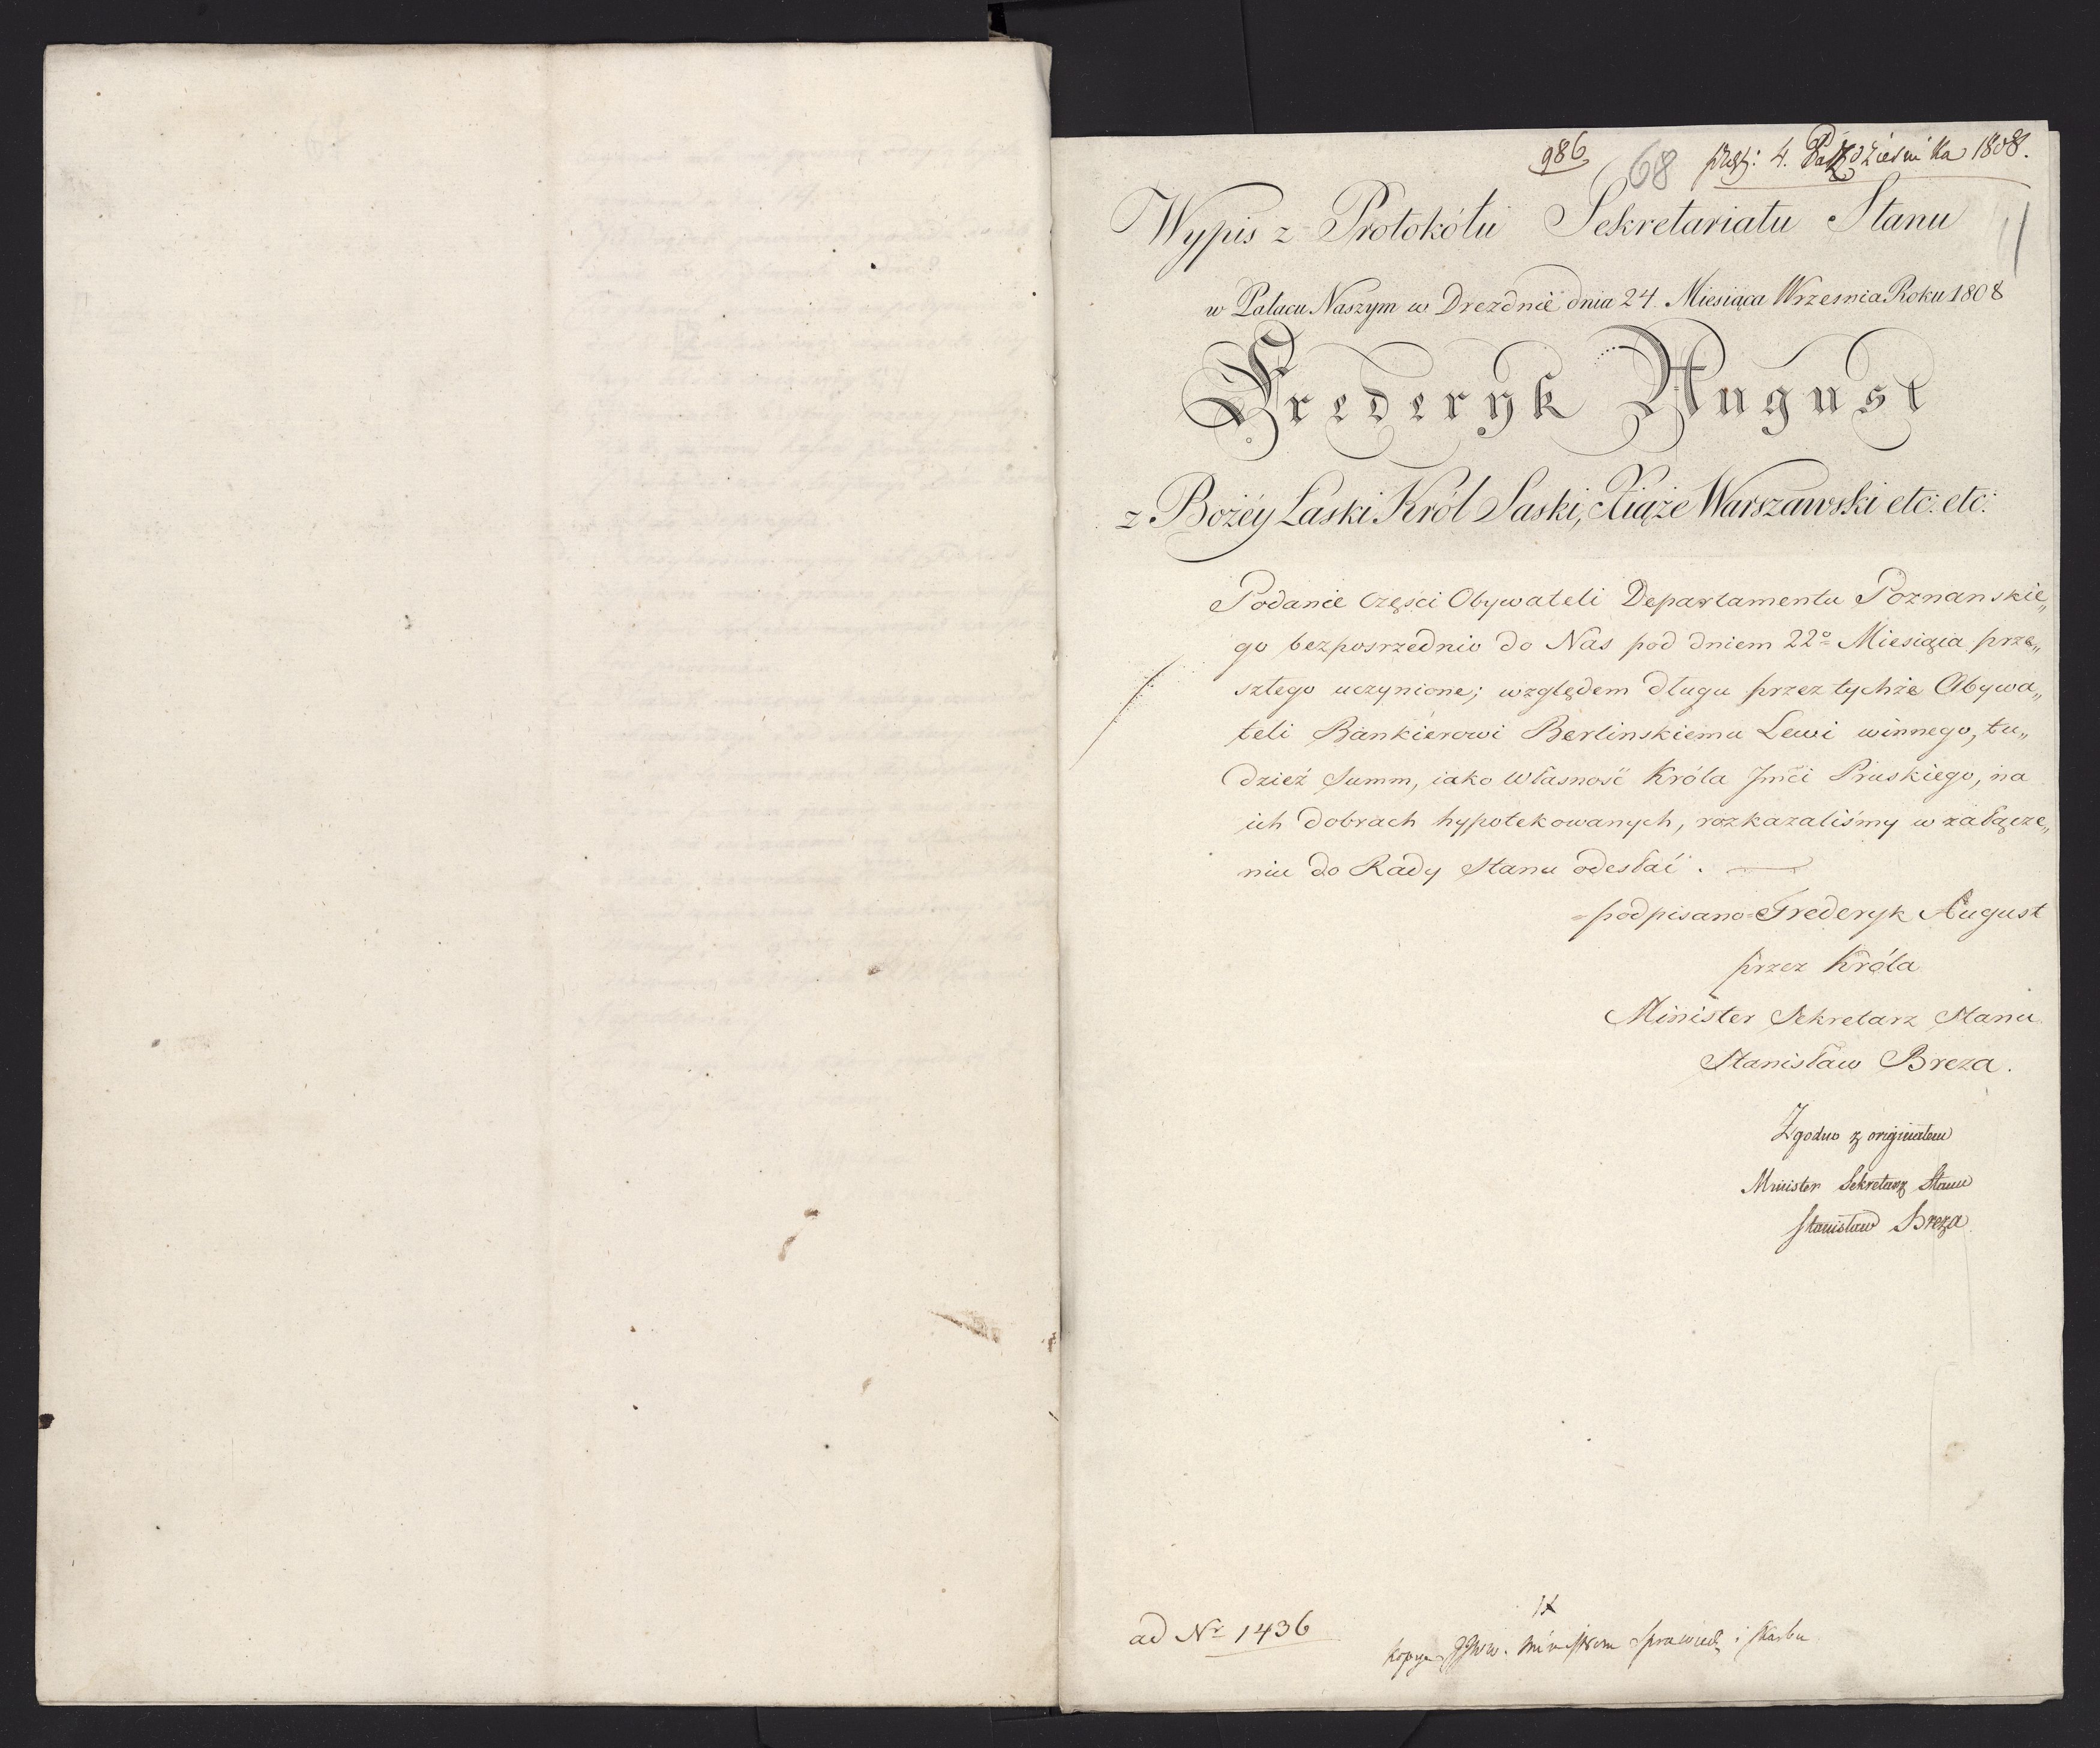 986 68 4. Października 1808.
Wypis z Protokółu Sekretariatu Stanu
w Pałacu Naszym w Dreznie dnia 24. Miesiąca Wrzesnia Roku 1808
Frederyk August
z Bożéy Łaski Król Saski, Xiąże Warszawski etc: etc:
Podanie części Obywateli Departamentu Poznanskie„
go bezposrzednio do Nas pod dniem 22º Miesiąca prze„
szłego uczynione; względem długu przez tychże Obywa„
teli Bankierowi Berlinskiemu Lewi winnego, tu„
dzież Summ, iako własność Króla Jmci Pruskiego, na
ich dobrach hypotekowanych, rozkazaliśmy w załącze„
niu do Rady Stanu odesłać.
=podpisano=Frederyk August
przez Króla
Minister Sekretarz Stanu
Stanisław Breza.
Zgodno z originałem
Minister Sekretarz Stanu
Stanisław Breza
ad Nr 1436
Ministrom Sprawiedl i Skarbu